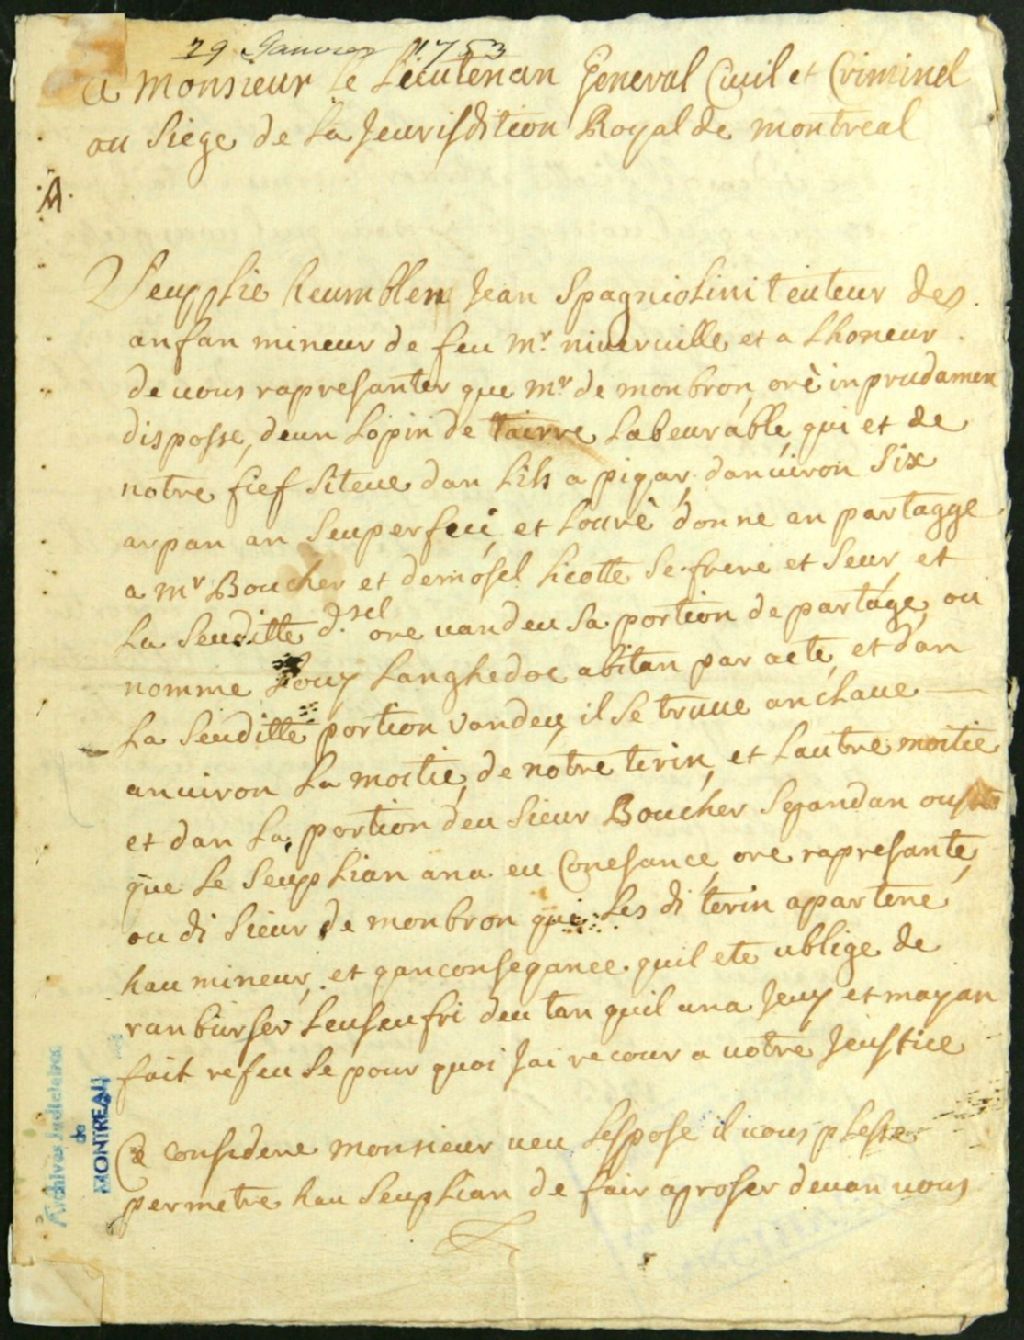 29 Janvier 1753
a monsieur le Lieutenan General Civil et Criminel
au Siege de La Jeurisdition Royal de montreal
A.
Seupplie heumblem Jean Spagniolini teuteur des
anfan mineur de feu mr. niverville et a Lhoneur
de vous rapresanter que mr de monbron, orè inprudamen
dispossé, deun Lopin de tairre Labeurable, qui et de
notre fief siteue dan Lils a pigar, danviron six
arpan an seuperfeci, et Lourè donne an partagge
a mr Boucher et demosel Licotte se frere et seur, et
La seuditte d.sel ore vandeu sa portion de partage, ou
nomme Louy Langhedoc abitan par acte, et dan
La seuditte portion vandeu, il se truve anclave
anviron La moitie, de notre terin, et Lautre moitie
et dan La portion deu sieur Boucher sepandan
que Le seupplian ana eu Conesance, ore rapresanté,
ou di sieur de monbron que Les di terin apartené
hau mineur, et qanconseqance quil ete ublige de
ranburser Leuseufri deu tan quil una Jeuy et mayan
fait refeuse pour quoi Jai recour a votre Jeustice
Ce considere monsieur veu Lespose il vous plesse
permetre hau seupplian de fair aproser devan vous
Archives Judiciaires
de
MONTREAL